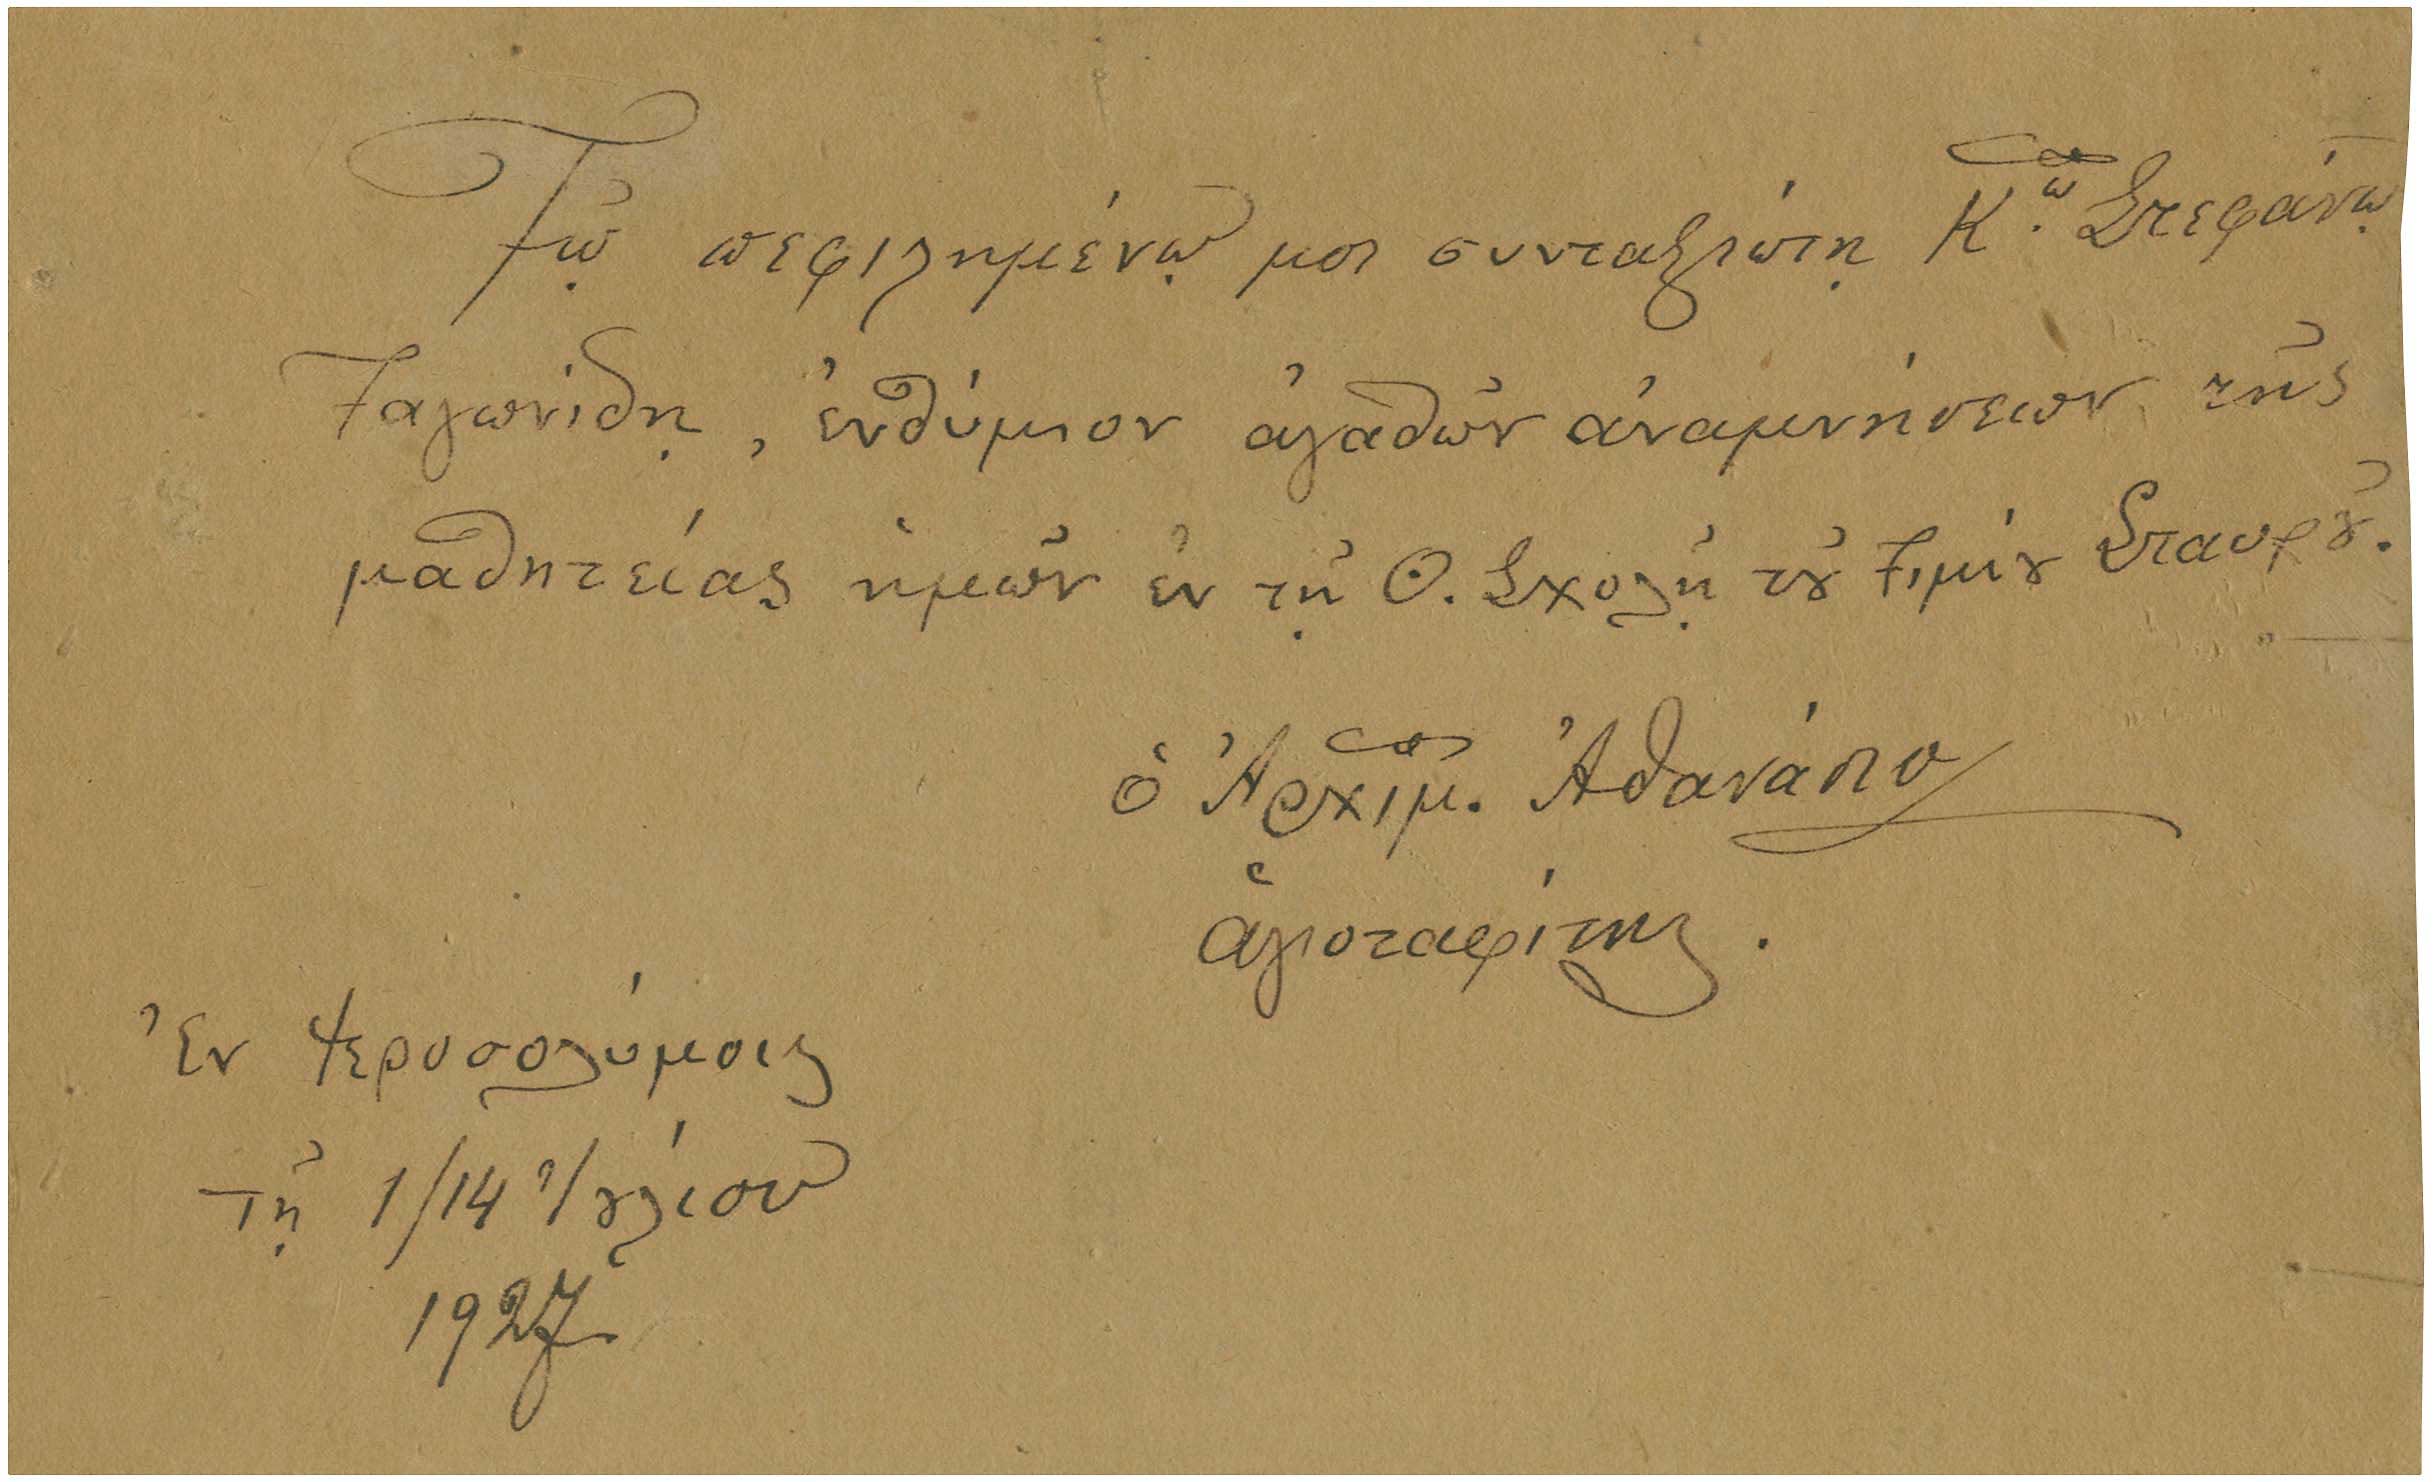 Τῷ πεφιλημένῳ μοι συνταξιώτῃ Κ.ῳ Στεφάνῳ
Ταγωνίδῃ, ἐνθύμιον ἀγαθῶν ἀναμνήσεων τῆς
μαθητείας ἡμῶν ἐν τῇ Θ. Σχολῇ τοῦ Τιμίου Σταυροῦ.
ὁ Ἀρχιμ. Ἀθανάσιο
ἁγιοταφίτης.
Ἐν Ἱεροσολύμοις
τῇ 1/14 Ἰουλίου
1927